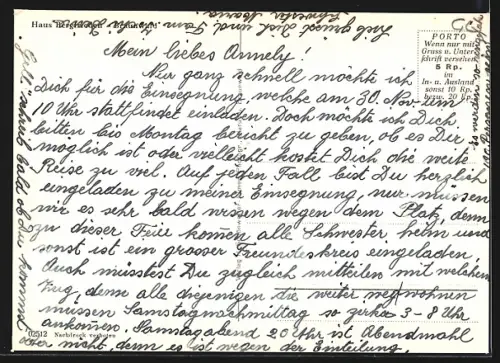 Haus Bergfrieden
PORTO
Wenn nur mit
Gruss u. Unter-
schrift versehen
5 Rp.
im
In- u. Ausland
sonst 10 Rp.
bezw. 20 Rp.
Mein liebes Annely!
Nur ganz schnell möchte ich
Dich für die Einsegnung, welche am 30. Nov. um
10 Uhr stattfindet einladen. Doch möchte ich Dich,
bitten bis Montag bericht zu geben, ob es Dir
möglich ist oder vielleicht kostet Dich die weite
Reise zu viel. Auf jeden Fall bist Du herzlich
eingeladen zu meiner Einsegnung, nur müssen
wir es sehr bald wissen wegen dem Platz, denn
zu dieser Feier kommen alle Schwester heim und
sonst ist ein grosser Freundeskreis eingeladen.
Auch müsstest Du zugleich mitteilen mit welchem
Zug, denn alle diejenigen die weiter weg wohnen
müssen Samstagnachmittag so zirka 3-8 Uhr
ankommen. Samstagabend 20 Uhr ist Abendmahl
aber nicht, denn es ist wegen der Einteilung.
02512 Nachdruck verboten
Gell, schreib bald ob Du kommst
Lieb grüsst Dich und
Schwester